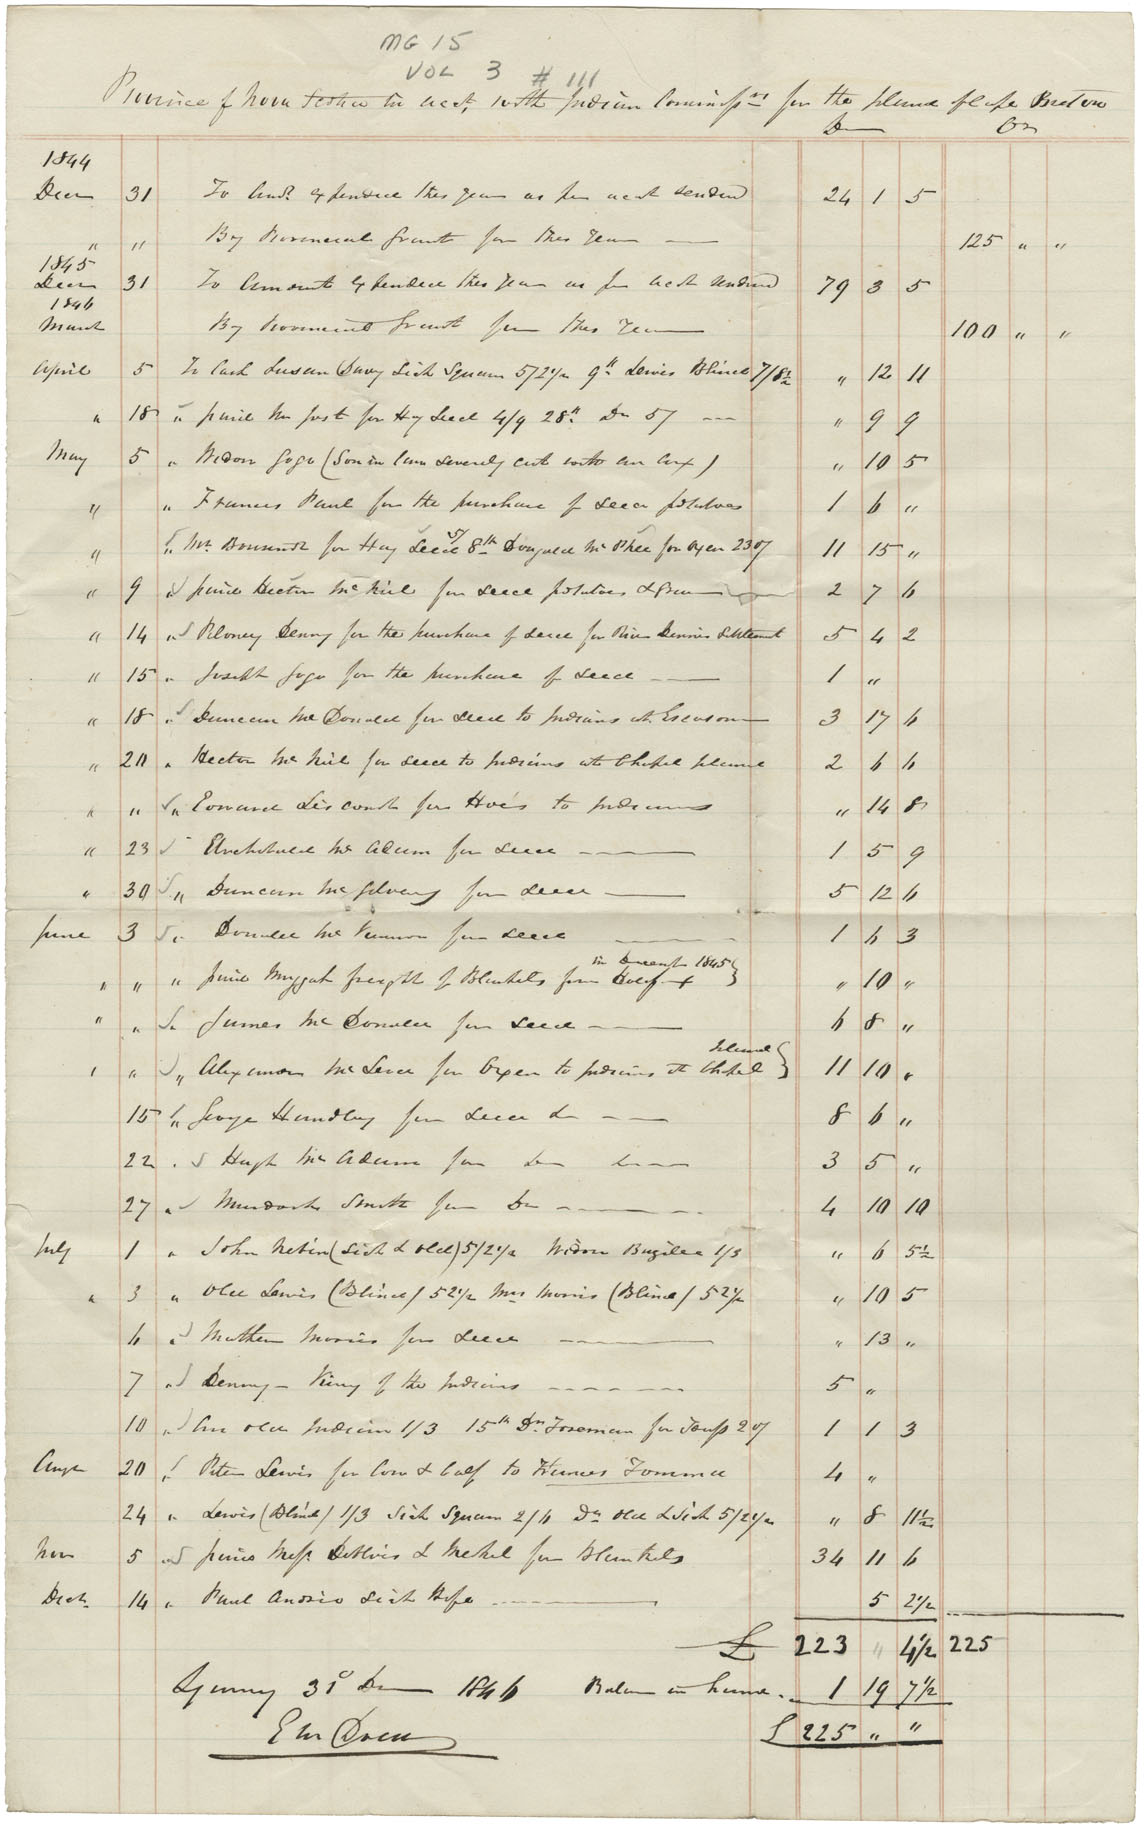 MG 15
VOL 3 # 111
Province of Nova Scotia in acct, with Indian Commissr for the Island of Cape Breton
Dr Cr
1844
Decr 31 To Amt expended this year as per acct rendered 24 1 5
" " By Provincial Grant for this Year 125 " "
1845
Decr 31 To Amount expended this Year as per acct rendered 79 3 5
1846
March By Provincial Grant for this Year 100 " "
April 5 To Cash Susan Davy Sick Squaw 5/2½ 9th Lewis Blind 7/8½ " 12 11
" 18 " paid Mr for Hay Seed 4/9 28th Do 5/ " 9 9
May 5 " Widow Gogo (Son in law severely cut with an axe) " 10 5
" " Frances Paul for the purchase of seed potatoes 1 6 "
" " Mr for Hay Seed 5/ 8th Dougald McPhee for Oxen 230/ 11 15 "
" 9 " paid Hector McNeil for seed potatoes & 2 7 6
" 14 " Denny for the purchase of seed for River Dennis Settlement 5 4 2
" 15 " Joseph Gogo for the purchase of seed 1 "
" 18 " Duncan McDonald for seed to Indians at Escasoni 3 17 6
" 20 " Hector McNeil for seed to Indians at Chapel Island 2 6 6
" " " Edward Liscomb for Hoes to Indians " 14 8
" 23 Archibald McAdam for seed 1 5 9
" 30 " Duncan McGilvary for seed 5 12 6
June 3 " Donald McKinnon for seed 1 6 3
in Decemr 1845 }
" " " paid Muggah freight of Blankets from Halifax " 10 "
" " " James McDonald for seed 6 8 "
Island }
" " " Alexander McLeod for Oxen to Indians at Chapel 11 10 "
15 " George Handley for seed do 8 6 "
22 " Hugh McAdam for do do 3 5 "
27 " Murdoch Smith for Do 4 10 10
July 1 " John Nebin (Sick & old) 5/2½ Widow Bazilee 1/3 " 6 5½
" 3 " Old Lewis (Blind) 5 2½ Mrs Morris (Blind) 5 2½ " 10 5
6 " Matthew Morris for seed " 13 "
7 " Denny - King of the Indians 5 "
10 " An old Indian 1/3 15th Dn Foreman for 20/ 1 1 3
Augt 20 " Peter Lewis for Cow & Calf to Frances Tomma 4 "
24 " Lewis (Blind) 1/3 Sick Squaw 2/6 Do old & Sick 5/2½ " 8 11½
Nov 5 " paid Messr DeBlois & Merkel for Blankets 34 11 6
Decr 14 " Paul Andrio Sick 5 2½
£ 223 " 4½ 225
Sydney 31st Dec 1846 Balance in hand 1 19 7½
E M Dodd £ 225 " "